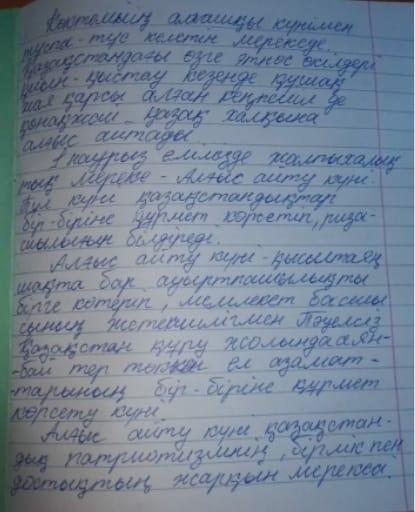 Көктемнің алғашқы күнімен
тұспа-тұс келетін мерекеде.
Қазақстандағы өзге этнос өкілдері
қиын-қыстау кезеңде құшақ
жая қарсы алған кеңпейіл де
қонақжай қазақ халқына
алғыс айтады.
1 наурыз елімізде жалпыхалық
тық мереке - Алғыс айту күні.
Бұл күні қазақстандықтар
бір-біріне құрмет көрсетіп, риза-
шылығын білдіреді.
Алғыс айту күні - қысылтаяң
шақта бар ауыртпашылықты
бірге көтеріп, мемлекет басшы
сының жетекшілігмен Тәуелсіз
Қазақстан құру жолында аян-
-бай тер төккен ел азамат-
-тарының бір-біріне құрмет
көрсету күні.
Алғыс айту күні қазақстан-
дық патриотизмнің, бірлік пен
достықтың жарқын мерекесі.